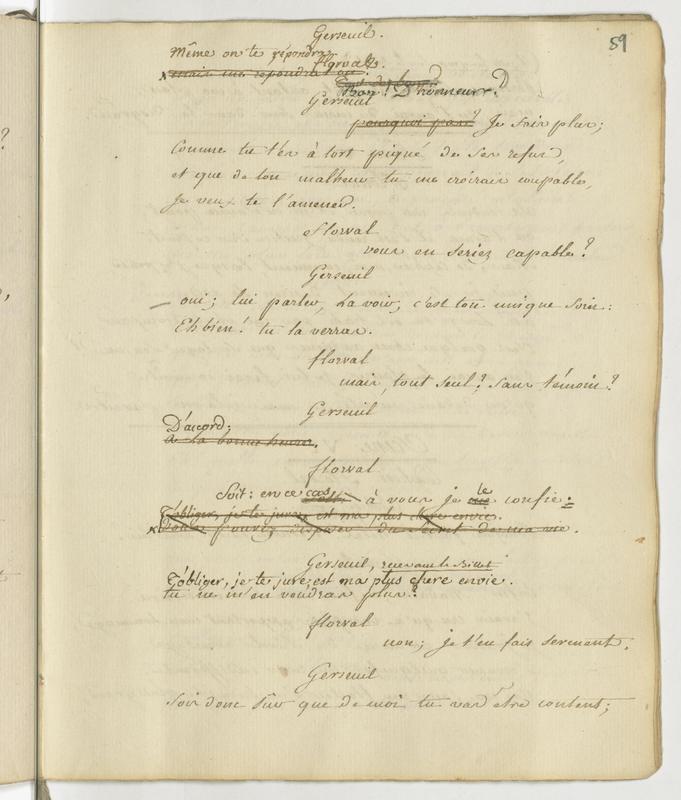 59
Gerseuil.
Même on te répondra.
mais me repondra t'on.
florval.
bon! D'honneur?
Gerseuil
pourquoi pas? Je fais plus;
Comme tu t'es à tort piqué de ses refus,
et que de ton malheur tu me croirais coupable,
Je veux te l'amener.
florval
vous en seriez capable?
Gerseuil
oui; lui parler, La voir, c'est ton unique soin:
Eh bien! tu la verras.
florval
mais, tout seul? sans témoin?
Gerseuil
D'accord;
à la bonne heure.
florval
Soit: en ce cas, à vous je le confie:
T'obliger, je te jure, est ma plus chere envie.
pouvez disposer du secret de ma vie.
Gerseuil, recevant le Billet
T'obliger, je te jure, est ma plus chere envie.
tu ne m'en voudras plus?
florval
non; je t'en fais serment.
Gerseuil
sois donc sûr que de moi tu vas être content;